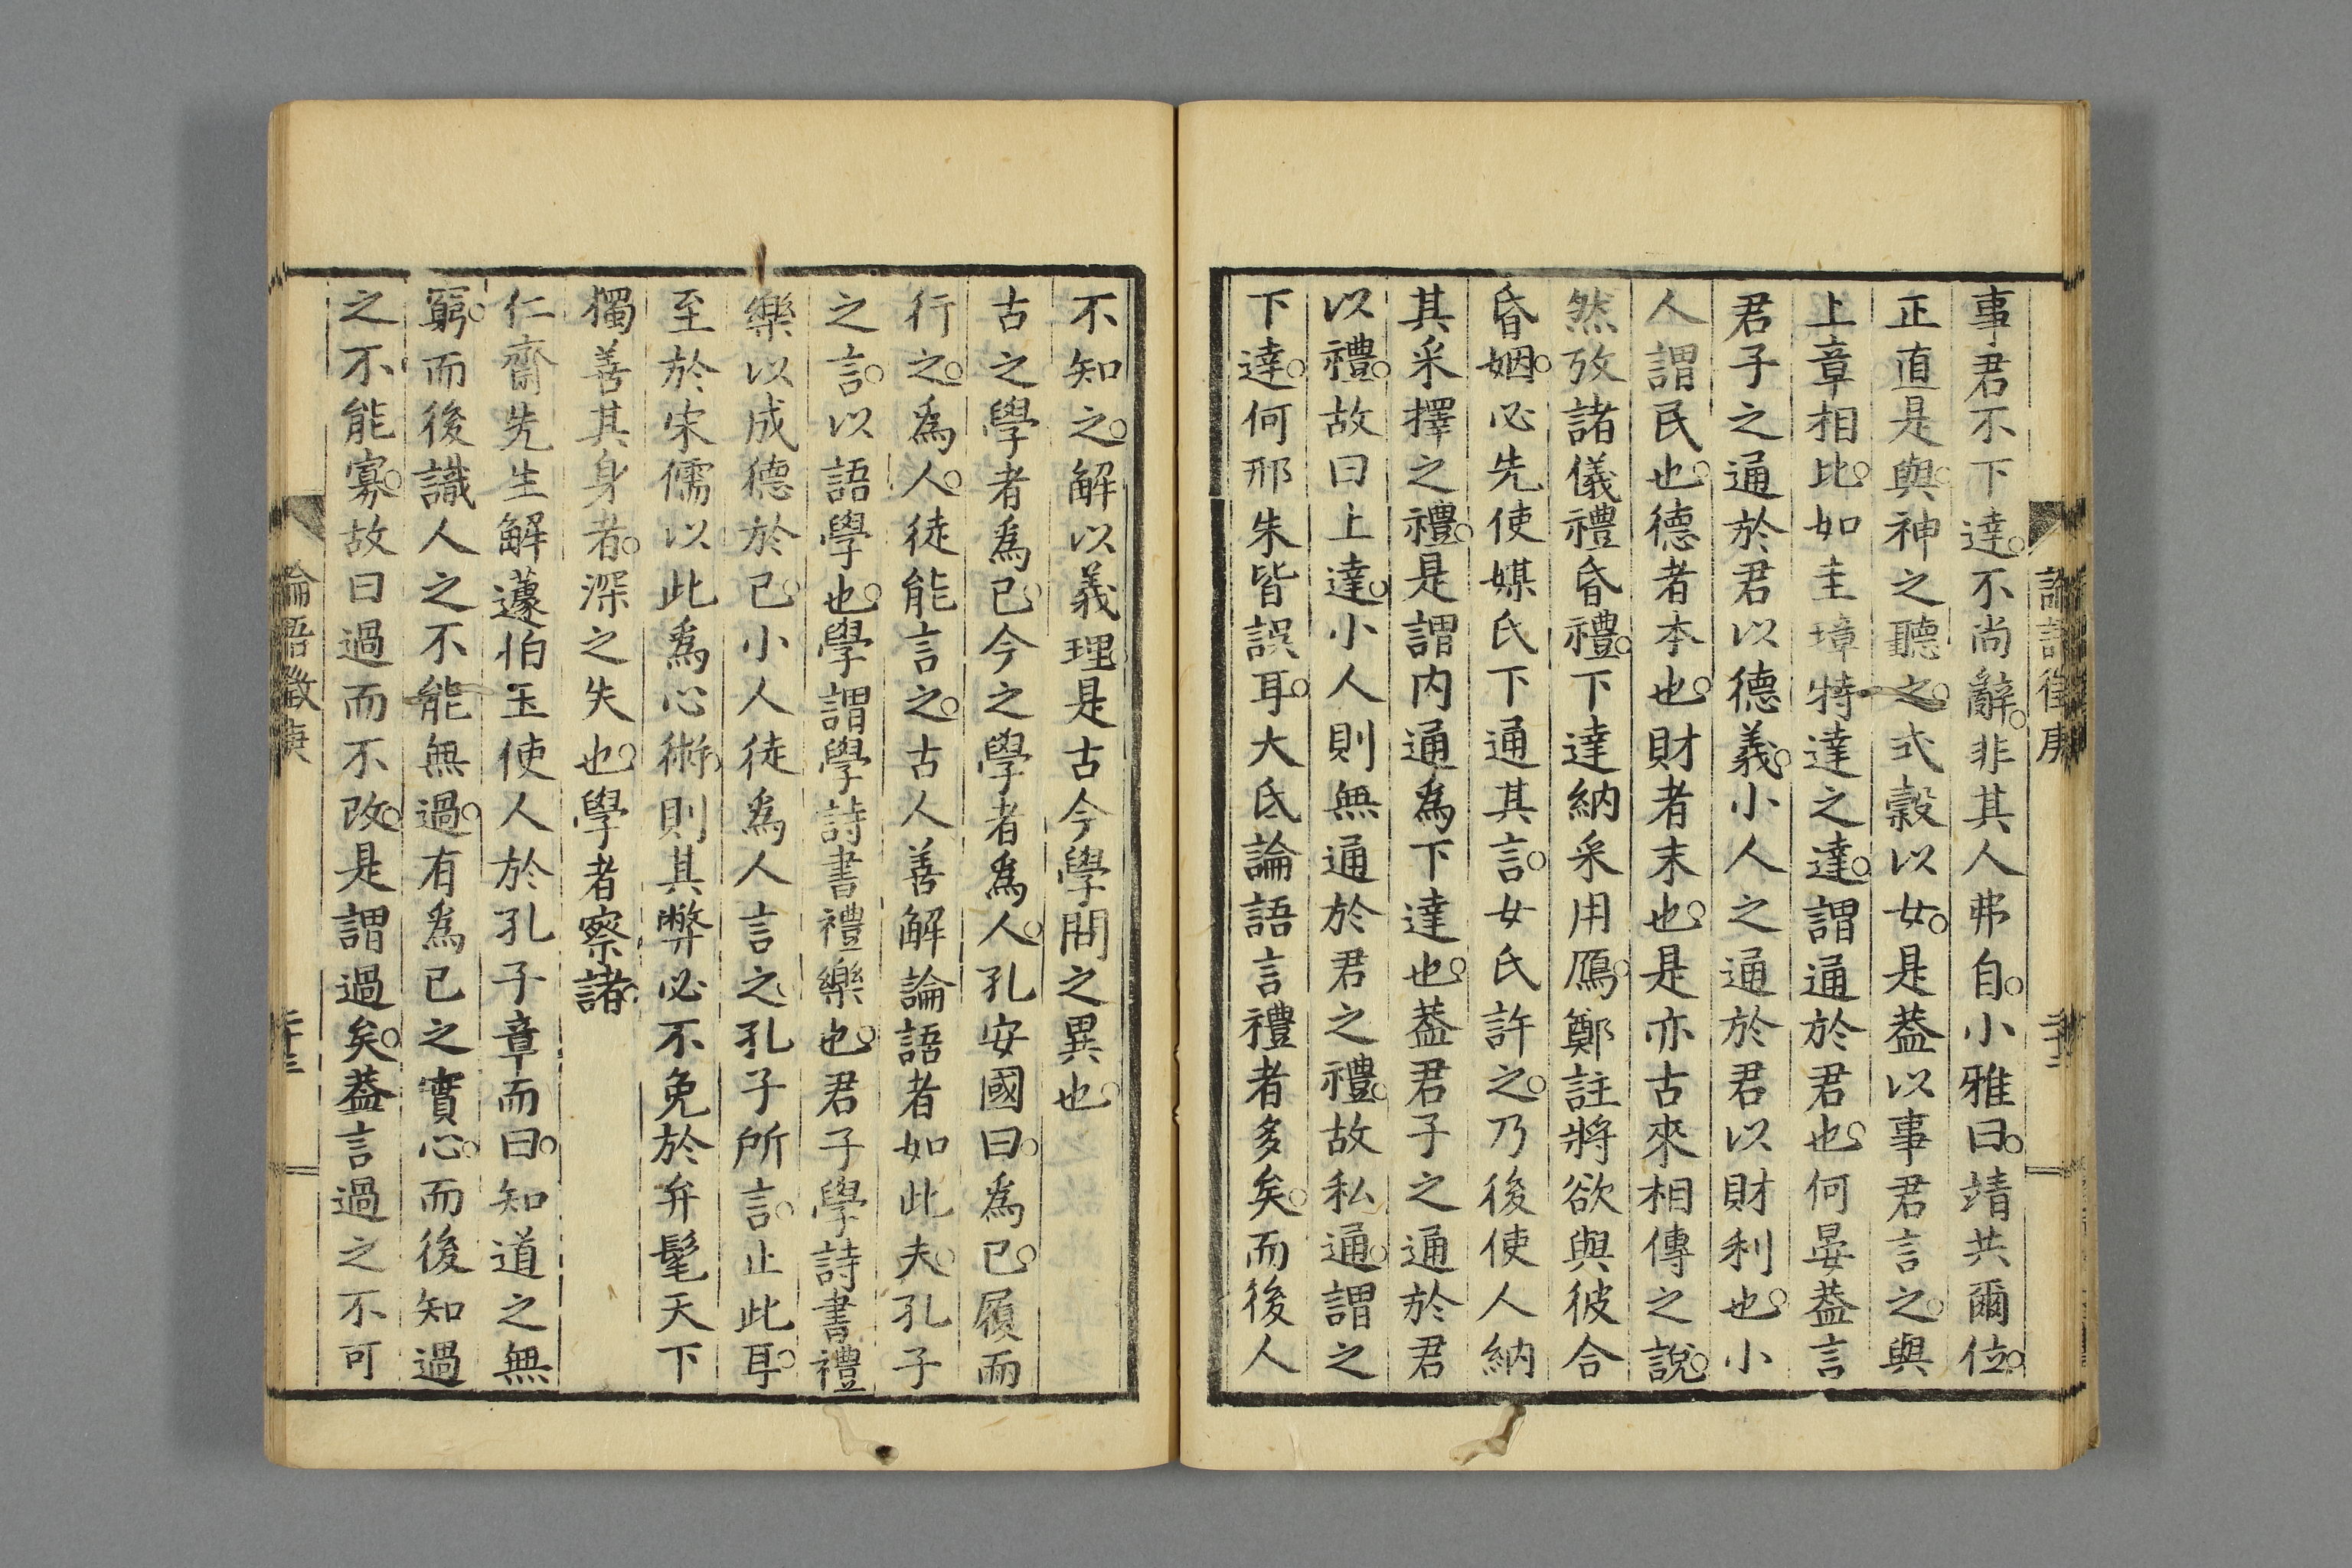 論語徴庚
二十二
事君不下達。不尚辭。非其人弗自。小雅曰。靖共爾位。
正直是與。神之聽之。式穀以女。是葢以事君言之。與
上章相比。如圭璋特達之達。謂通於君也。何晏葢言
君子之通於君以德義。小人之通於君以財利也。小
人謂民也。德者本也。財者末也。是亦古來相傳之說。
然攷諸儀禮昏禮。下達納采用鴈。鄭註將欲與彼合
昏姻。必先使媒氏下通其言。女氏許之。乃後使人納
其采擇之禮。是謂内通爲下達也。葢君子之通於君
以禮。故曰上達。小人則無通於君之禮。故私通。謂之
下達。何邢朱皆誤耳。大氐論語言禮者多矣。而後人
不知之。解以義理。是古今學問之異也。
古之學者爲己。今之學者爲人。孔安國曰。爲己。履而
行之。爲人。徒能言之。古人善解論語者如此夫。孔子
之言。以語學也。學謂學詩書禮樂也。君子學詩書禮
樂以成德於己。小人徒爲人言之。孔子所言。止此耳。
至於宋儒以此爲心術。則其弊必不免於弁髦天下
獨善其身者。深之失也。學者察諸。
仁齋先生解蘧伯玉使人於孔子章而曰。知道之無
窮。而後識人之不能無過。有爲己之實心。而後知過
之不能寡。故曰過而不改。是謂過矣。葢言過之不可
論語徴庚
二十三